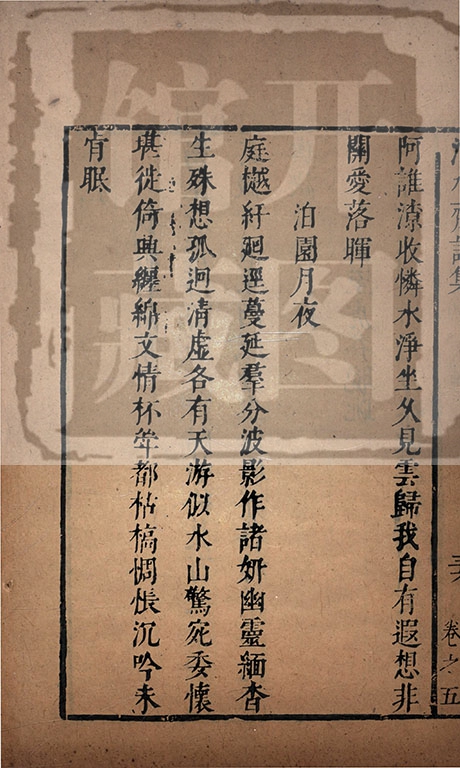 阿誰潦收憐水淨坐久見雲歸我自有遐想非
關愛落暉
泊園月夜
庭樾紆廻逕蔓延羣分波影作諸妍幽靈緬杳
生殊想孤迥清虛各有天游似水山驚宛委懷
堪徙倚興纏綿文情杯斚都枯槁惆悵沉吟未
肯眠
卷之五